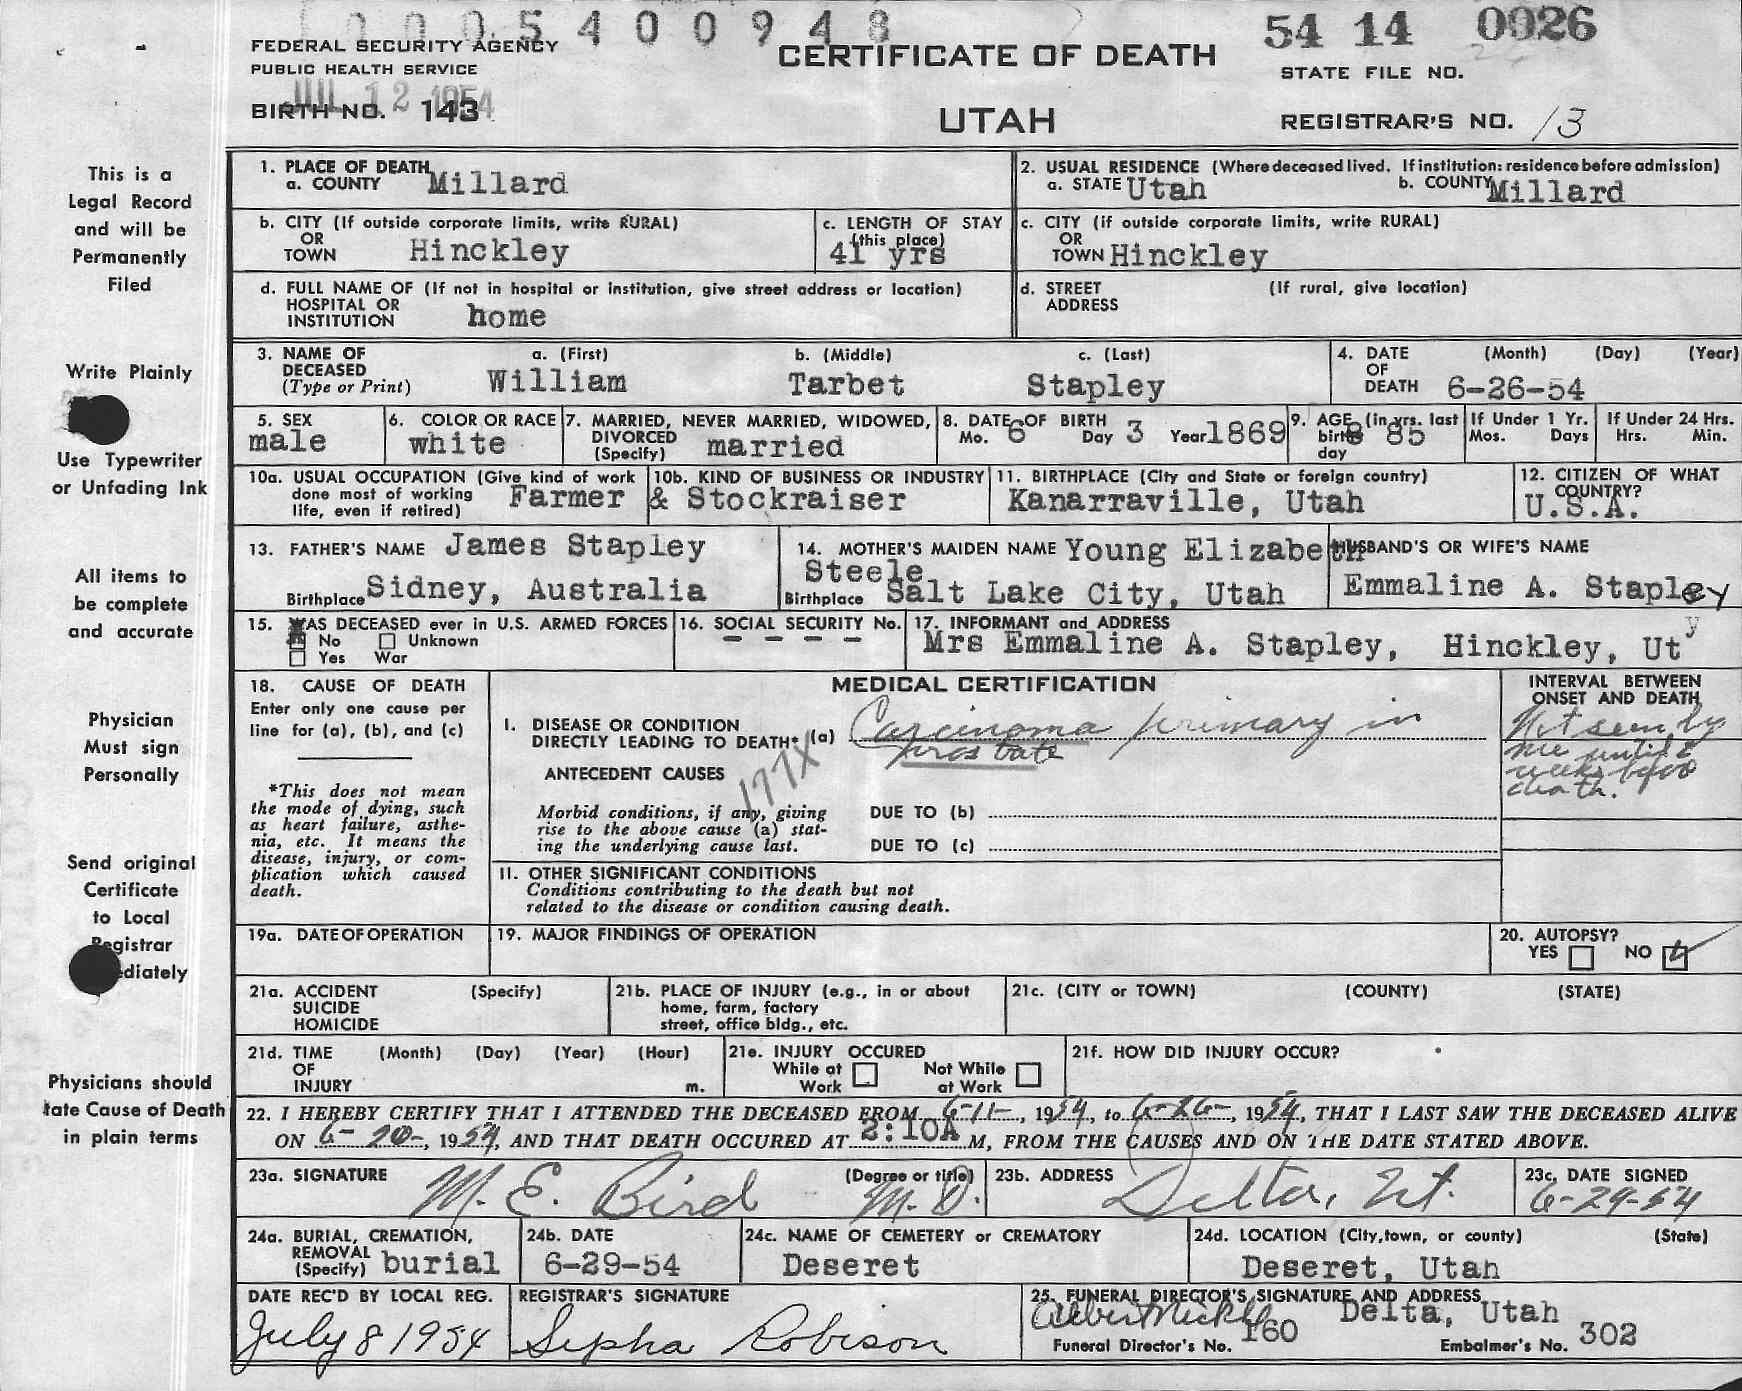 0005400948
54 14 0026
FEDERAL SECURITY AGENCY
PUBLIC HEALTH SERVICE
CERTIFICATE OF DEATH
STATE FILE NO.
JUL 12 1954
BIRTH NO. 143
UTAH
REGISTRAR'S NO. 13
This is a
Legal Record
and will be
Permanently
Filed
1. PLACE OF DEATH
a. COUNTY Millard
2. USUAL RESIDENCE (Where deceased lived. If institution: residence before admission)
a. STATE Utah b. COUNTY Millard
b. CITY (If outside corporate limits, write RURAL)
OR
TOWN Hinckley
c. LENGTH OF STAY
(this place)
41 yrs
c. CITY (if outside corporate limits, write RURAL)
OR
TOWN Hinckley
d. FULL NAME OF (If not in hospital or institution, give street address or location)
HOSPITAL OR
INSTITUTION home
d. STREET (If rural, give location)
ADDRESS
Write Plainly
3. NAME OF
DECEASED
(Type or Print)
a. (First) b. (Middle) c. (Last)
William Tarbet Stapley
4. DATE (Month) (Day) (Year)
OF
DEATH 6-26-54
Use Typewriter
or Unfading Ink
5. SEX
male
6. COLOR OR RACE
white
7. MARRIED, NEVER MARRIED, WIDOWED,
DIVORCED
(Specify) married
8. DATE OF BIRTH
Mo. 6 Day 3 Year 1869
9. AGE (in yrs. last
birth 85
day
If Under 1 Yr.
Mos. Days
If Under 24 Hrs.
Hrs. Min.
10a. USUAL OCCUPATION (Give kind of work
done most of working
life, even if retired) Farmer
10b. KIND OF BUSINESS OR INDUSTRY
& Stockraiser
11. BIRTHPLACE (City and State or foreign country)
Kanarraville, Utah
12. CITIZEN OF WHAT
COUNTRY?
U.S.A.
All items to
be complete
and accurate
13. FATHER'S NAME James Stapley
Birthplace Sidney, Australia
14. MOTHER'S MAIDEN NAME Young Elizabeth
Steele
Birthplace Salt Lake City, Utah
HUSBAND'S OR WIFE'S NAME
Emmaline A. Stapley
15. WAS DECEASED ever in U.S. ARMED FORCES
No Unknown
Yes War
16. SOCIAL SECURITY No.
- - - -
17. INFORMANT and ADDRESS
Mrs Emmaline A. Stapley, Hinckley, Ut
y
Physician
Must sign
Personally
18. CAUSE OF DEATH
Enter only one cause per
line for (a), (b), and (c)
*This does not mean
the mode of dying, such
as heart failure, asthe-
nia, etc. It means the
disease, injury, or com-
plication which caused
death.
MEDICAL CERTIFICATION
I. DISEASE OR CONDITION
DIRECTLY LEADING TO DEATH* (a) Carcinoma primary in
prostate
177X
ANTECEDENT CAUSES
Morbid conditions, if any, giving
rise to the above cause (a) stat-
ing the underlying cause last.
DUE TO (b)
DUE TO (c)
II. OTHER SIGNIFICANT CONDITIONS
Conditions contributing to the death but not
related to the disease or condition causing death.
INTERVAL BETWEEN
ONSET AND DEATH
Not seen by
me until 2
weeks before
death.
Send original
Certificate
to Local
Registrar
diately
19a. DATE OF OPERATION
19. MAJOR FINDINGS OF OPERATION
20. AUTOPSY?
YES NO
21a. ACCIDENT (Specify)
SUICIDE
HOMICIDE
21b. PLACE OF INJURY (e.g., in or about
home, farm, factory
street, office bldg., etc.
21c. (CITY or TOWN) (COUNTY) (STATE)
21d. TIME (Month) (Day) (Year) (Hour)
OF
INJURY m.
21e. INJURY OCCURED
While at Not While
Work at Work
21f. HOW DID INJURY OCCUR?
Physicians should
tate Cause of Death
in plain terms
22. I HEREBY CERTIFY THAT I ATTENDED THE DECEASED FROM 6-11-, 1954, to 6-26-, 1954, THAT I LAST SAW THE DECEASED ALIVE
ON 6-20-, 1954, AND THAT DEATH OCCURED AT 2:10A M, FROM THE CAUSES AND ON THE DATE STATED ABOVE.
23a. SIGNATURE (Degree or title)
M. E. Bird M.D.
23b. ADDRESS
Delta, Ut.
23c. DATE SIGNED
6-29-54
24a. BURIAL, CREMATION,
REMOVAL
(Specify) burial
24b. DATE
6-29-54
24c. NAME OF CEMETERY or CREMATORY
Deseret
24d. LOCATION (City, town, or county) (State)
Deseret, Utah
DATE REC'D BY LOCAL REG.
July 8 1954
REGISTRAR'S SIGNATURE
Sepha Robison
25. FUNERAL DIRECTOR'S SIGNATURE AND ADDRESS
Delta, Utah
Funeral Director's No. 160 Embalmer's No. 302